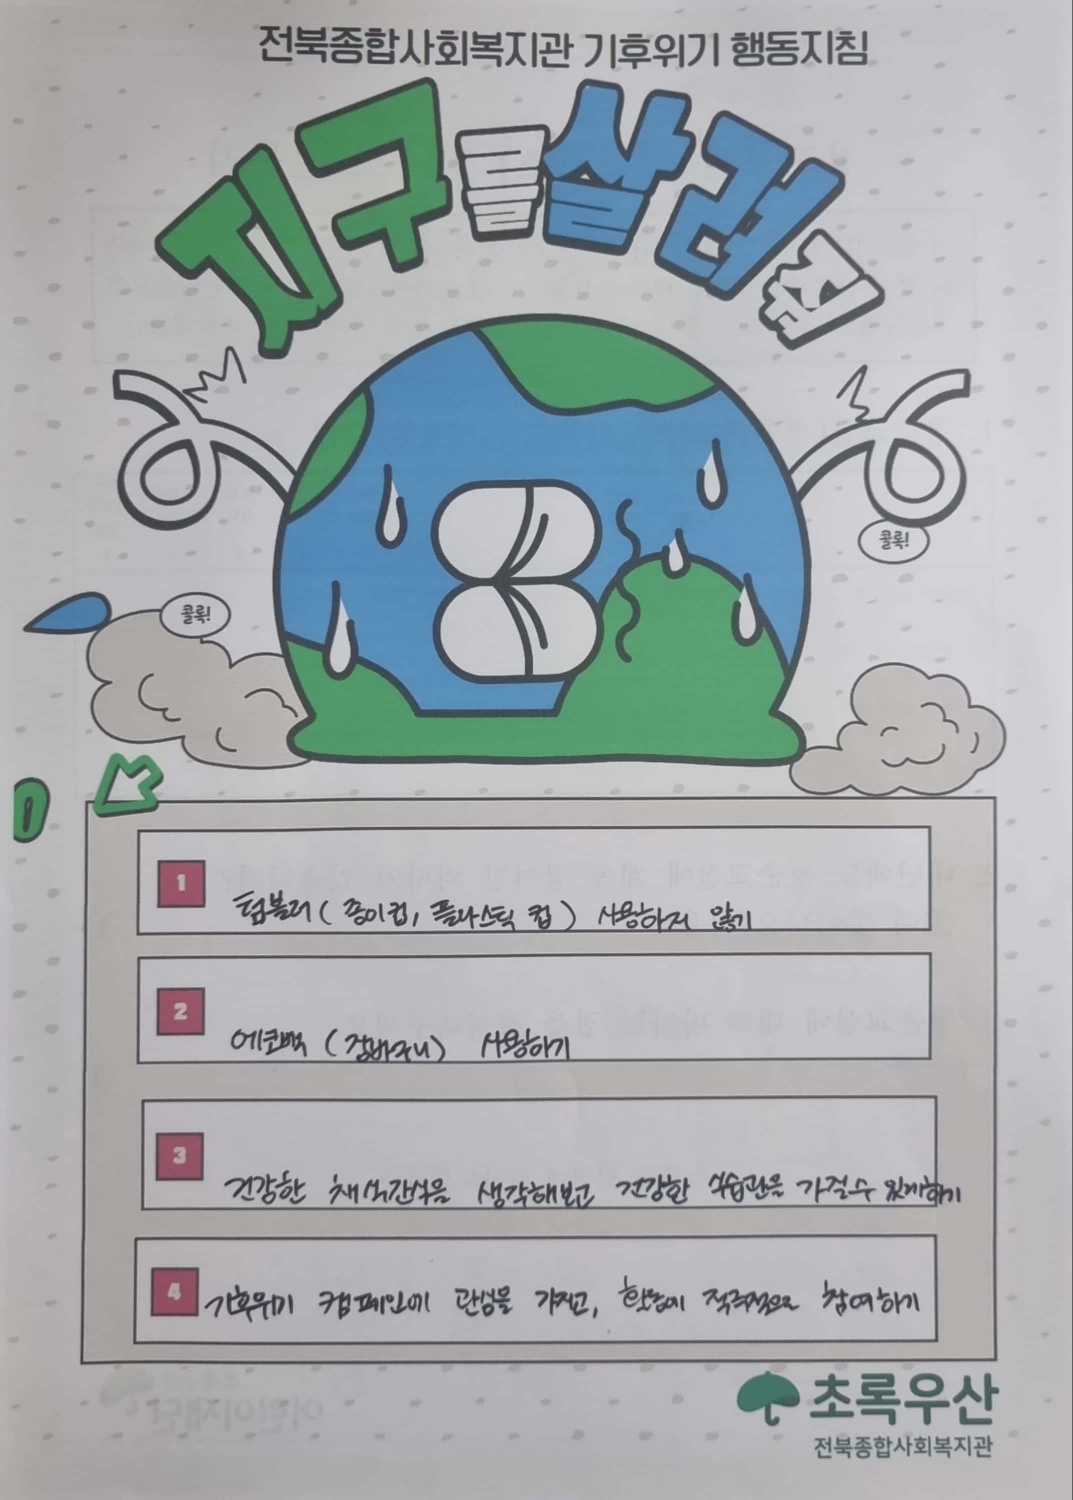 전북종합사회복지관 기후위기 행동지침
지구를 살려줘
콜록!
콜록!
1
텀블러 ( 종이컵, 플라스틱 컵 ) 사용하지 않기
2
에코백 ( 장바구니 ) 사용하기
3
건강한 채식간식을 생각해보고 건강한 식습관을 가질수 있게하기
4
기후위기 캠페인에 관심을 가지고, 활동에 적극적으로 참여하기
초록우산
전북종합사회복지관